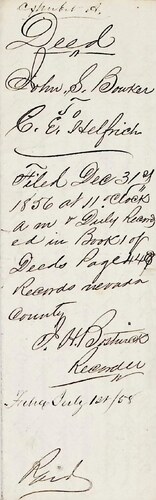 Exhibit A
Deed
John S. Bowker
To
C. E. Helfrich
Filed Dec 31st
1856 at 11 oClock
a m & Duly Record
ed in Book 1 of
Deeds Page 448
Records nevada
County
Recorder
Filed July 1st/08